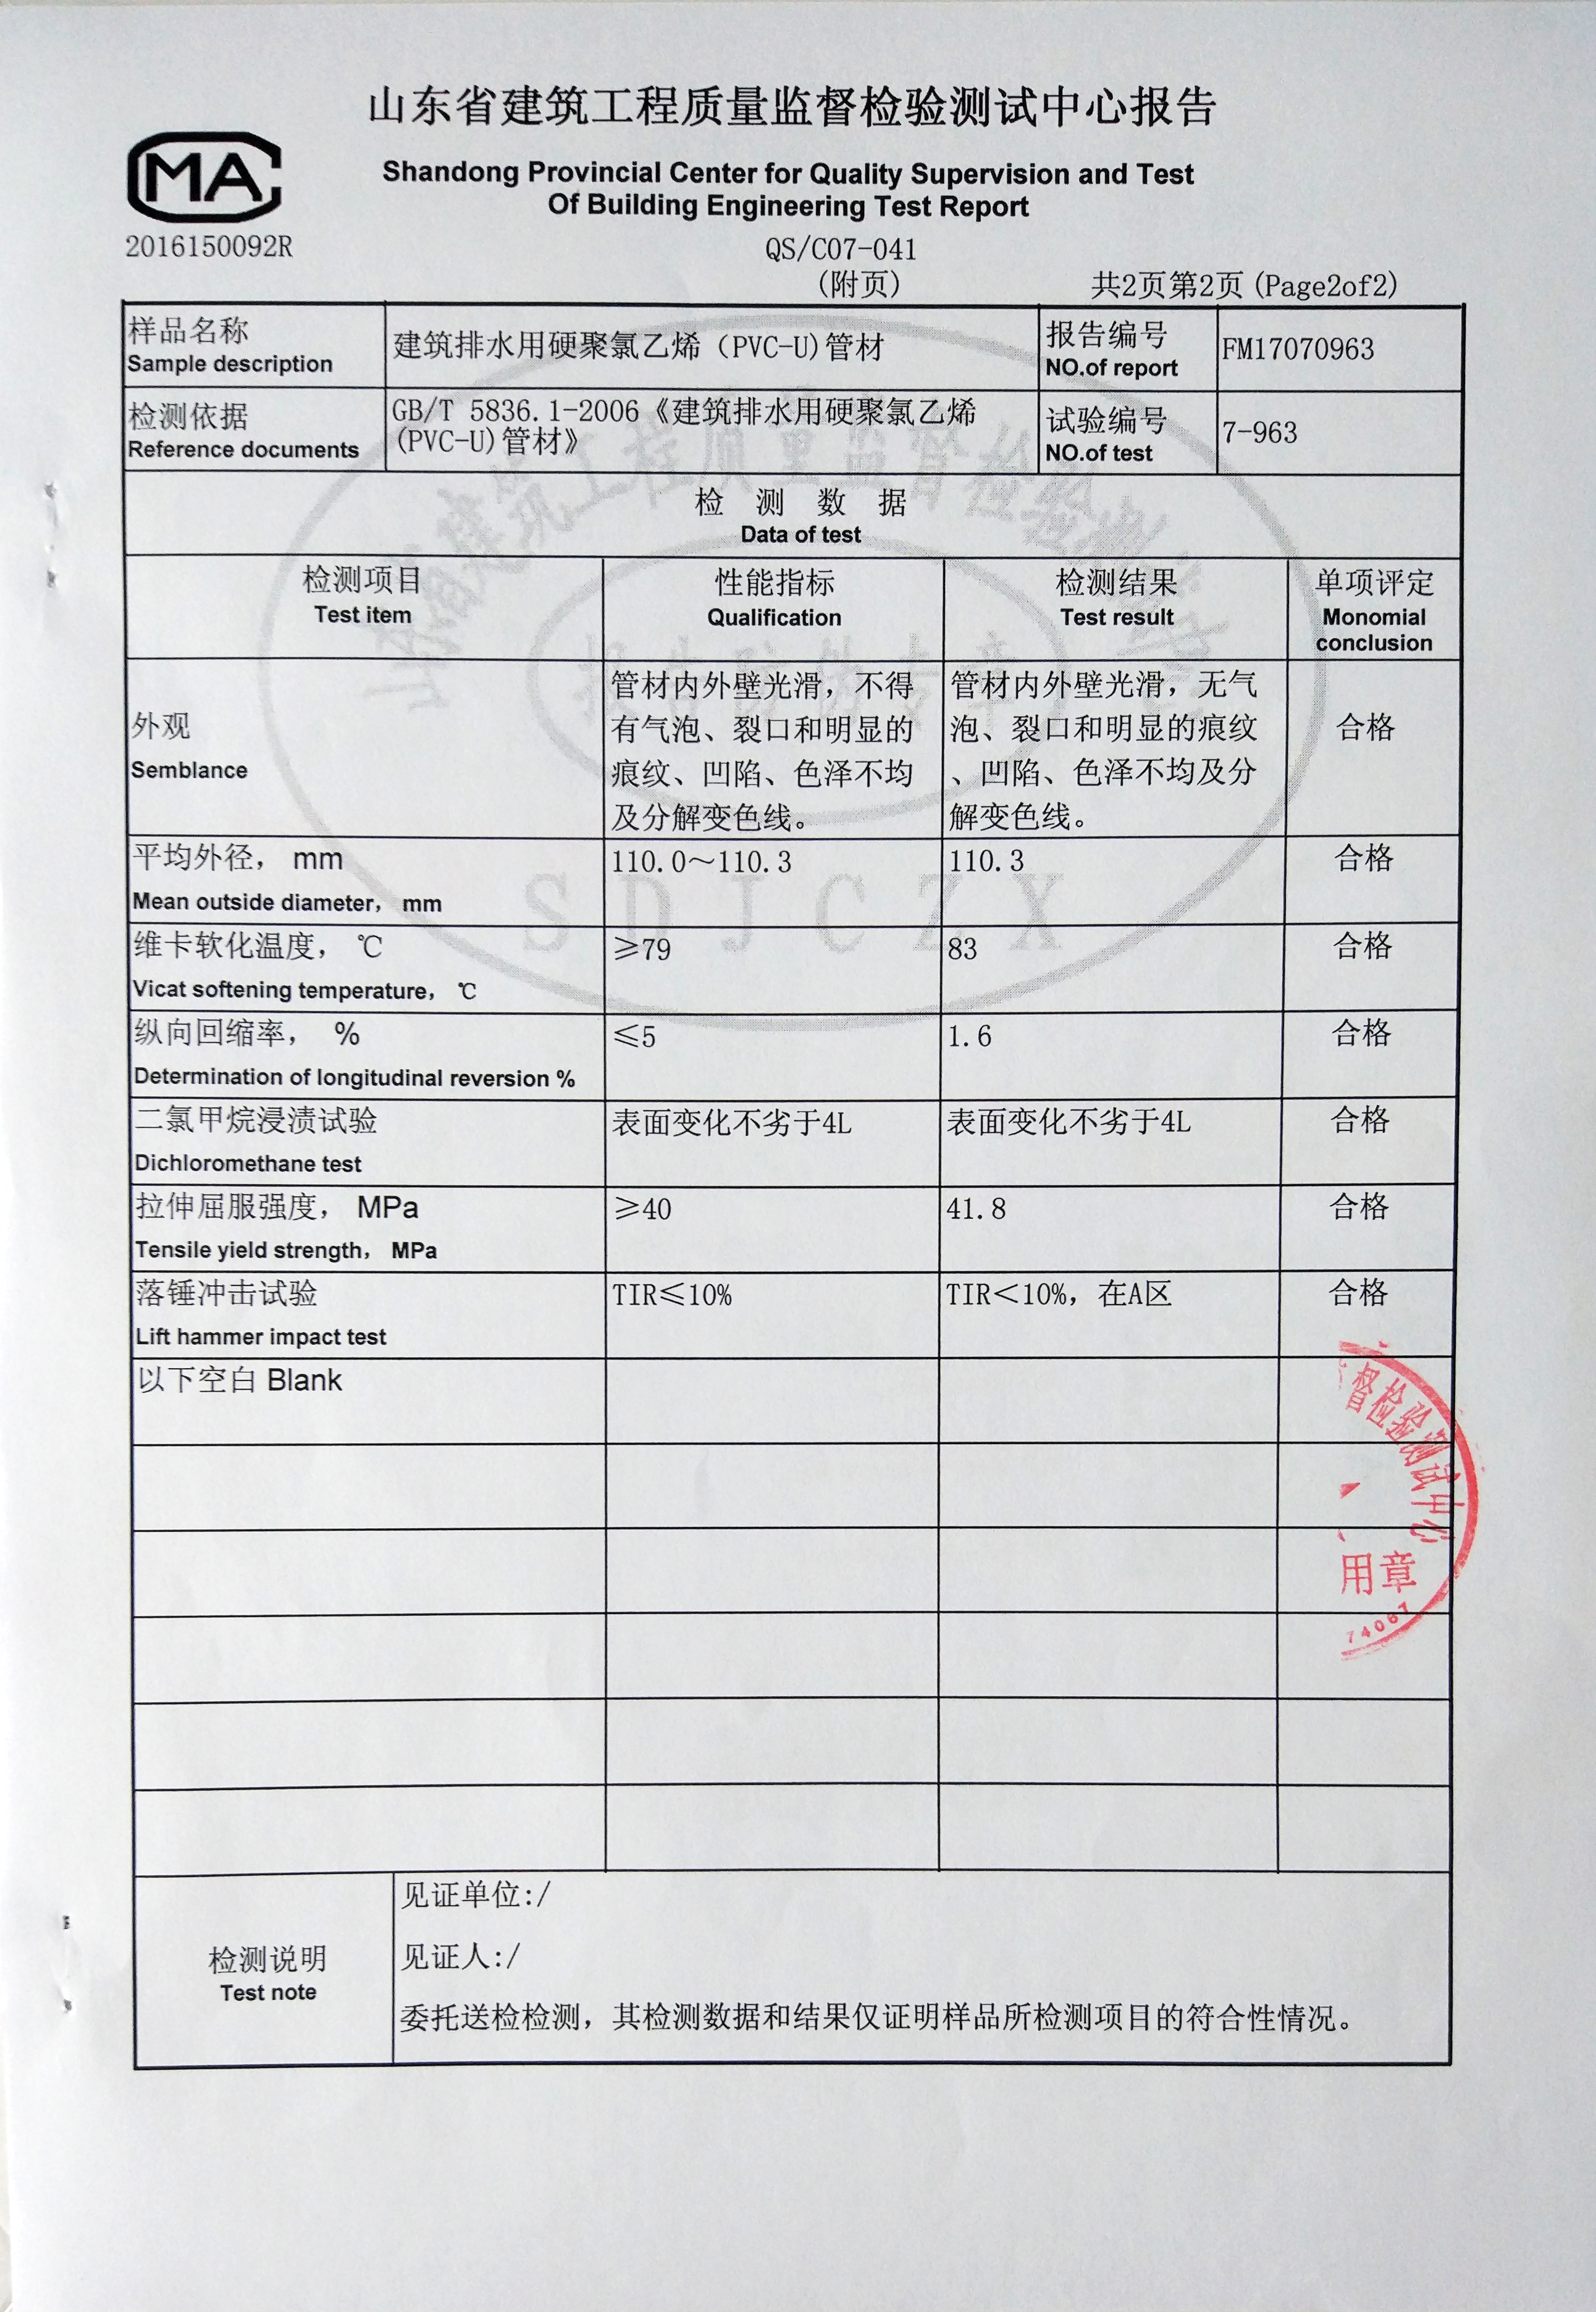 山东省建筑工程质量监督检验测试中心报告
MA
Shandong Provincial Center for Quality Supervision and Test
Of Building Engineering Test Report
2016150092R
QS/C07-041
(附页)
共2页第2页(Page2of2)
样品名称
Sample description
建筑排水用硬聚氯乙烯(PVC-U)管材
报告编号
NO.of report
FM17070963
检测依据
Reference documents
GB/T 5836.1-2006《建筑排水用硬聚氯乙烯
(PVC-U)管材》
试验编号
NO.of test
7-963
检 测 数 据
Data of test
检测项目
Test item
性能指标
Qualification
检测结果
Test result
单项评定
Monomial
conclusion
外观
Semblance
管材内外壁光滑，不得
有气泡、裂口和明显的
痕纹、凹陷、色泽不均
及分解变色线。
管材内外壁光滑，无气
泡、裂口和明显的痕纹
、凹陷、色泽不均及分
解变色线。
合格
平均外径， mm
Mean outside diameter， mm
110.0～110.3
110.3
合格
维卡软化温度， ℃
Vicat softening temperature， ℃
≥79
83
合格
纵向回缩率， %
Determination of longitudinal reversion %
≤5
1.6
合格
二氯甲烷浸渍试验
Dichloromethane test
表面变化不劣于4L
表面变化不劣于4L
合格
拉伸屈服强度， MPa
Tensile yield strength， MPa
≥40
41.8
合格
落锤冲击试验
Lift hammer impact test
TIR≤10%
TIR＜10%，在A区
合格
以下空白 Blank
督检验测试中心
用章
74067
检测说明
Test note
见证单位:/
见证人:/
委托送检检测，其检测数据和结果仅证明样品所检测项目的符合性情况。
建筑工程质量监督检验测
报告防伪专章
SDJCZX